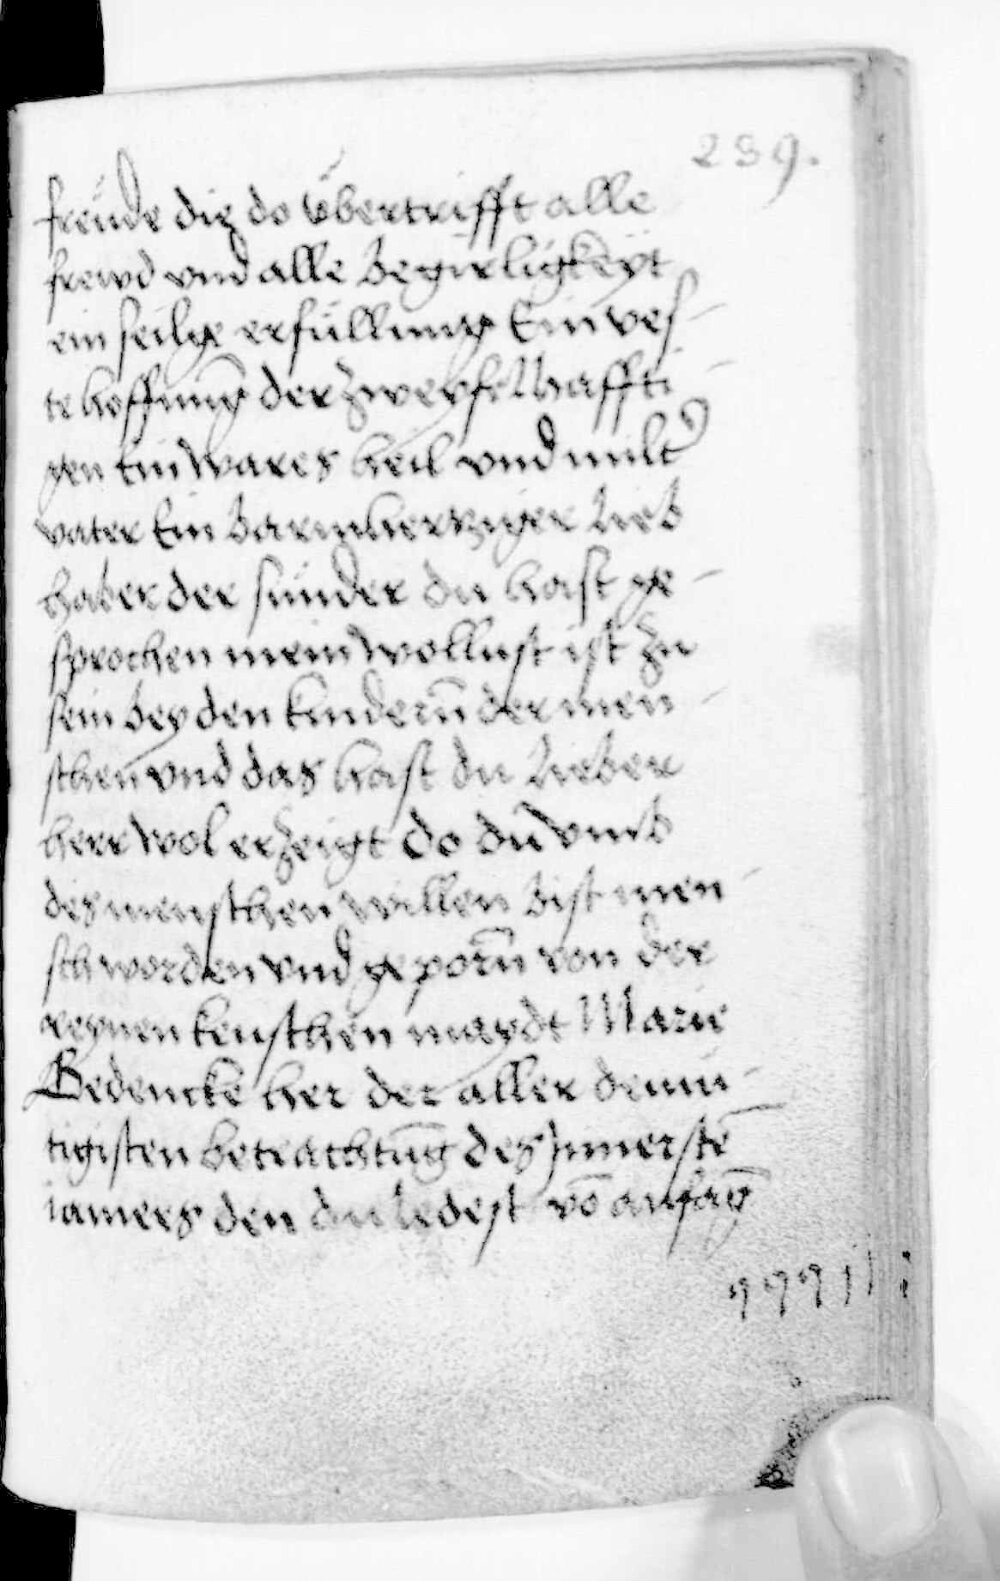 239.
freude die do übertrifft alle
frewd vnd alle Begirligkeyt
ein selige erfüllung Ein ves-
te hoffnung der zweyfelhaffti-
gen Ein wares heil vnd milter
vater Ein Barmhertziger lieb
haber der sünder du hast ge-
sprochen mein wollust ist zu
sein bey den kinderñ der men-
schen vnd das hast du lieber
herr wol erzeigt do du vmb
des menschen willen Bist men-
sch worden vnd geporñ von der
reynen keuschen maydt Marie
Gedencke her der aller demü-
tigisten betrachtūg des Innerstē
iamers den du ledest vō anfāg